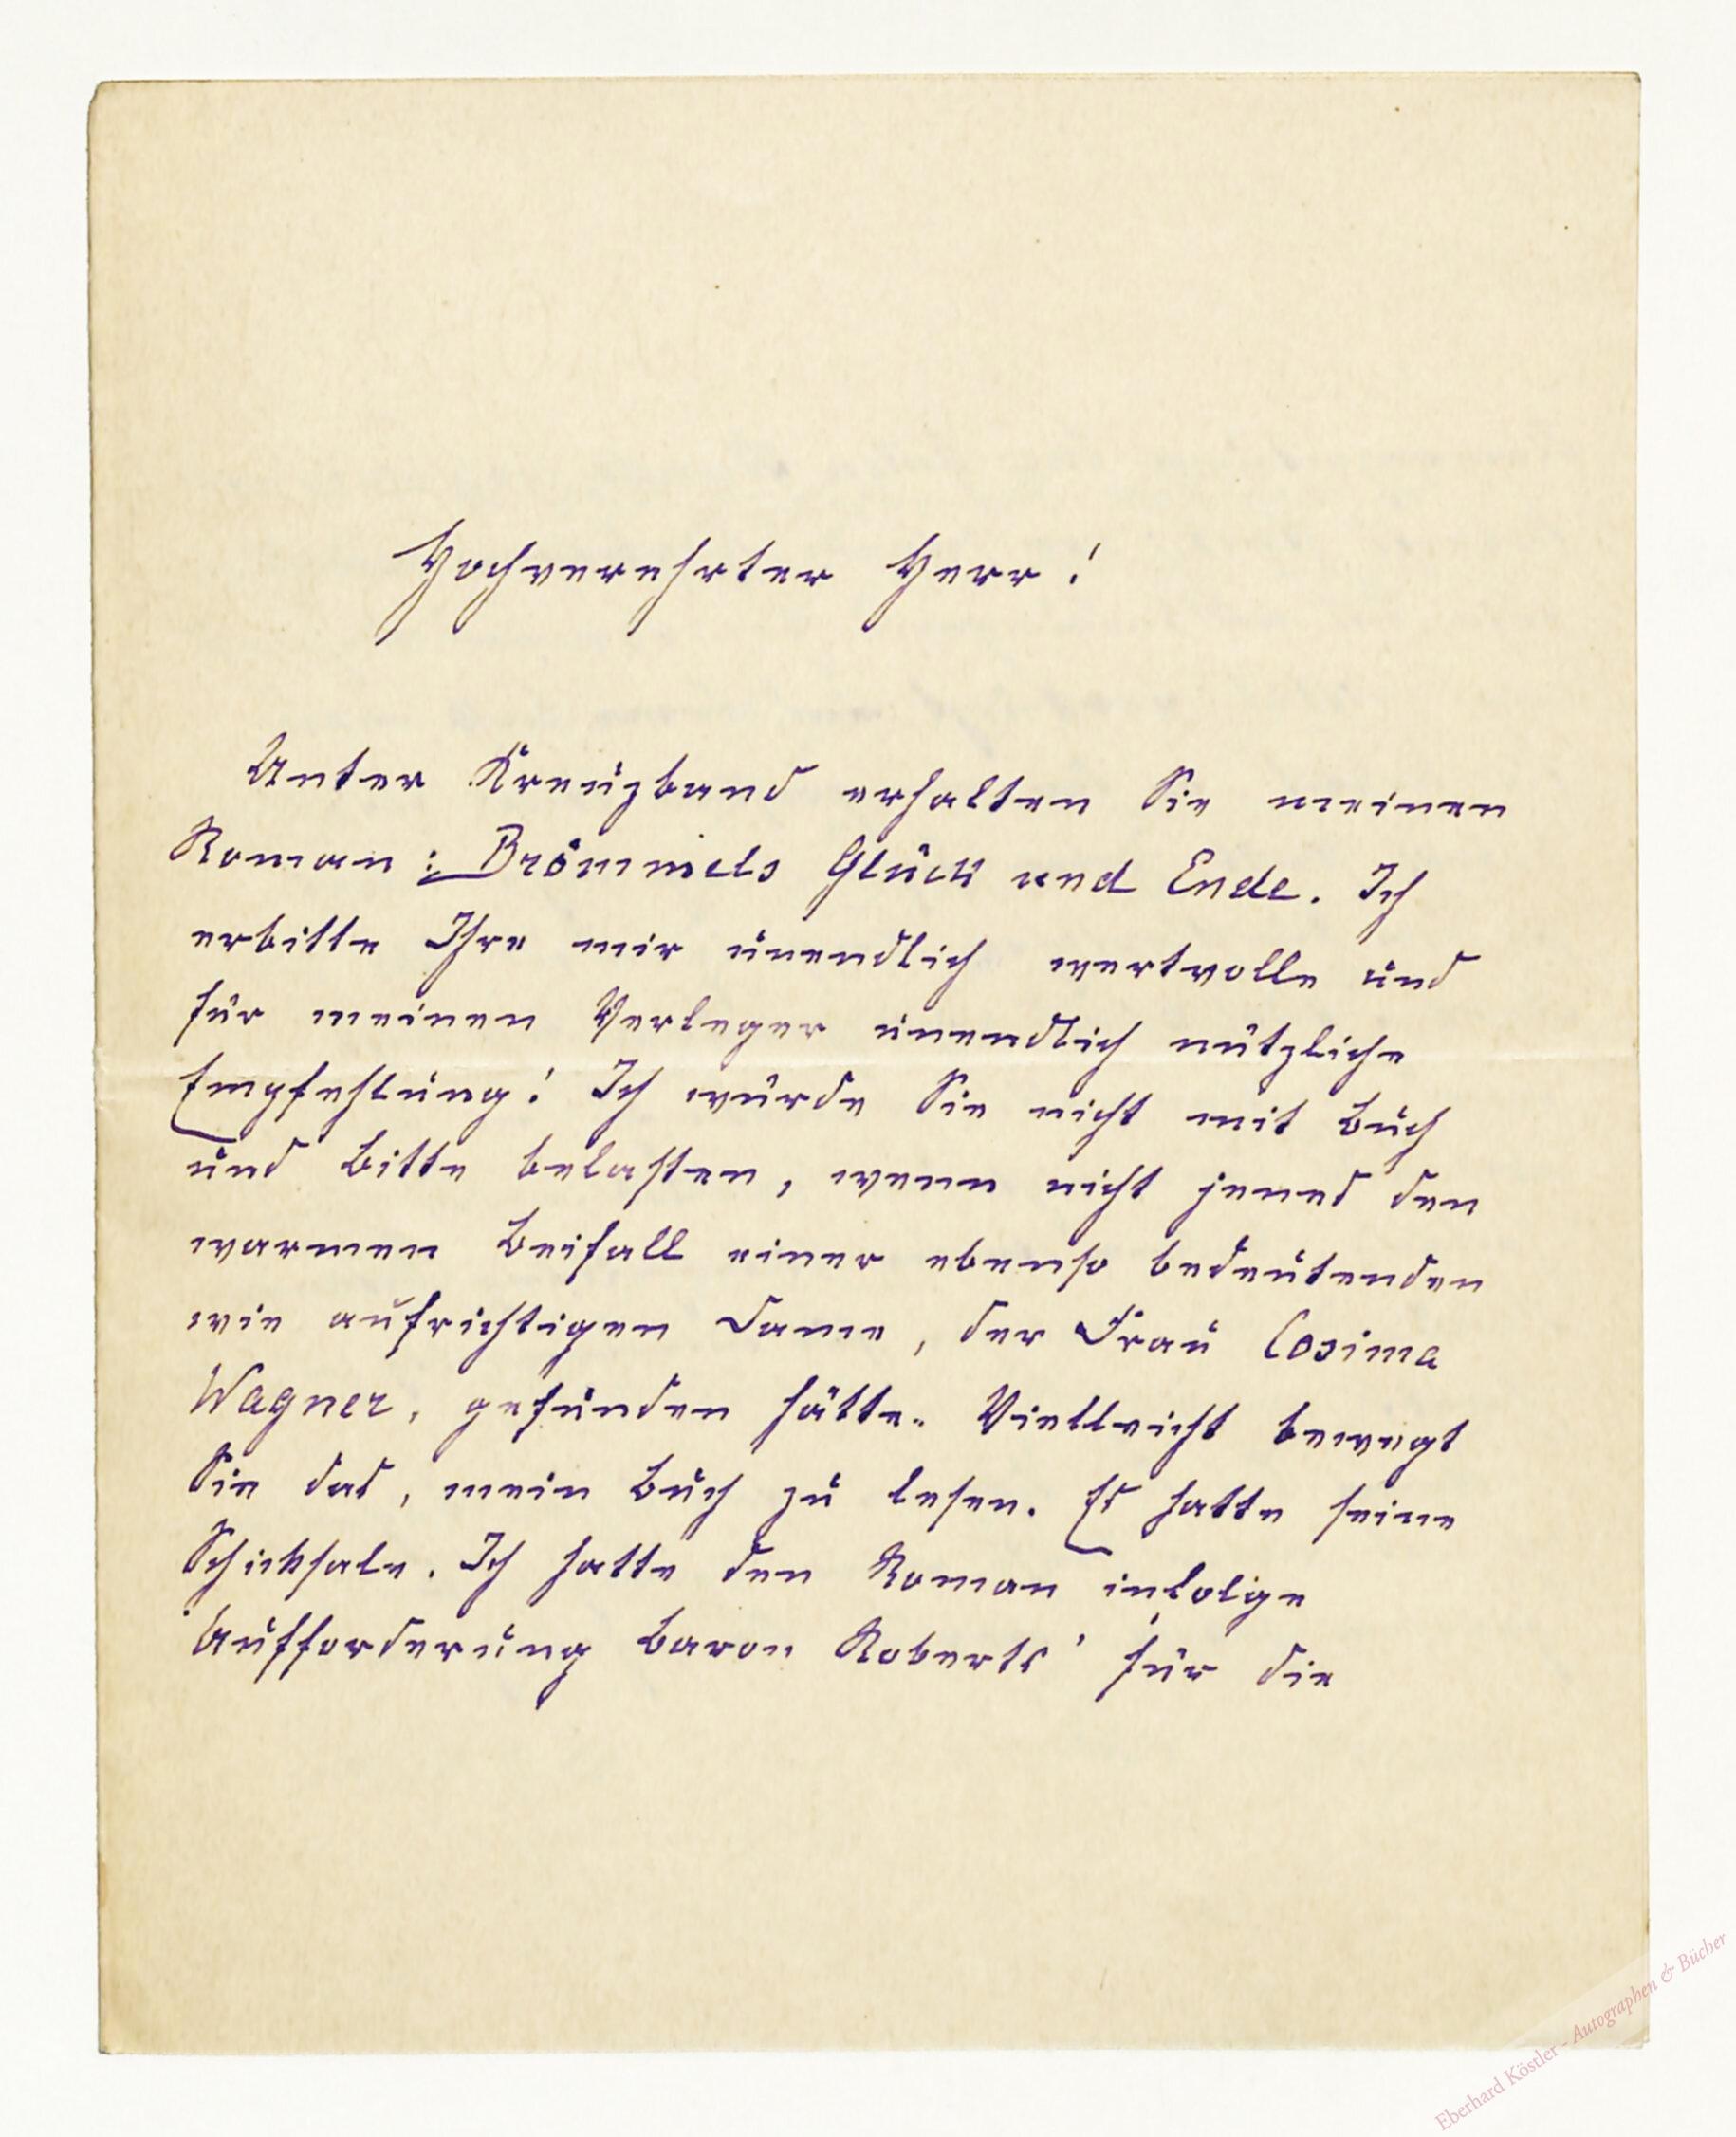 Hochverehrter Herr!
Unter Kreuzband erhalten Sie meinen
Roman: Brömmels Glück und Ende. Ich
erbitte Ihre mir unendlich wertvolle und
für meinen Verleger unendlich nützliche
Empfehlung! Ich würde Sie nicht mit Buch
und Bitte belasten, wenn nicht jenes den
warmen Beifall einer ebenso bedeutenden
wie aufrichtigen Dame, der Frau Cosima
Wagner, gefunden hätte. Vielleicht bewegt
Sie das, mein Buch zu lesen. Es hatte seine
Schicksale. Ich hatte den Roman infolge
Aufforderung Baron Roberts' für die
Eberhard Köstler - Autographen & Bücher